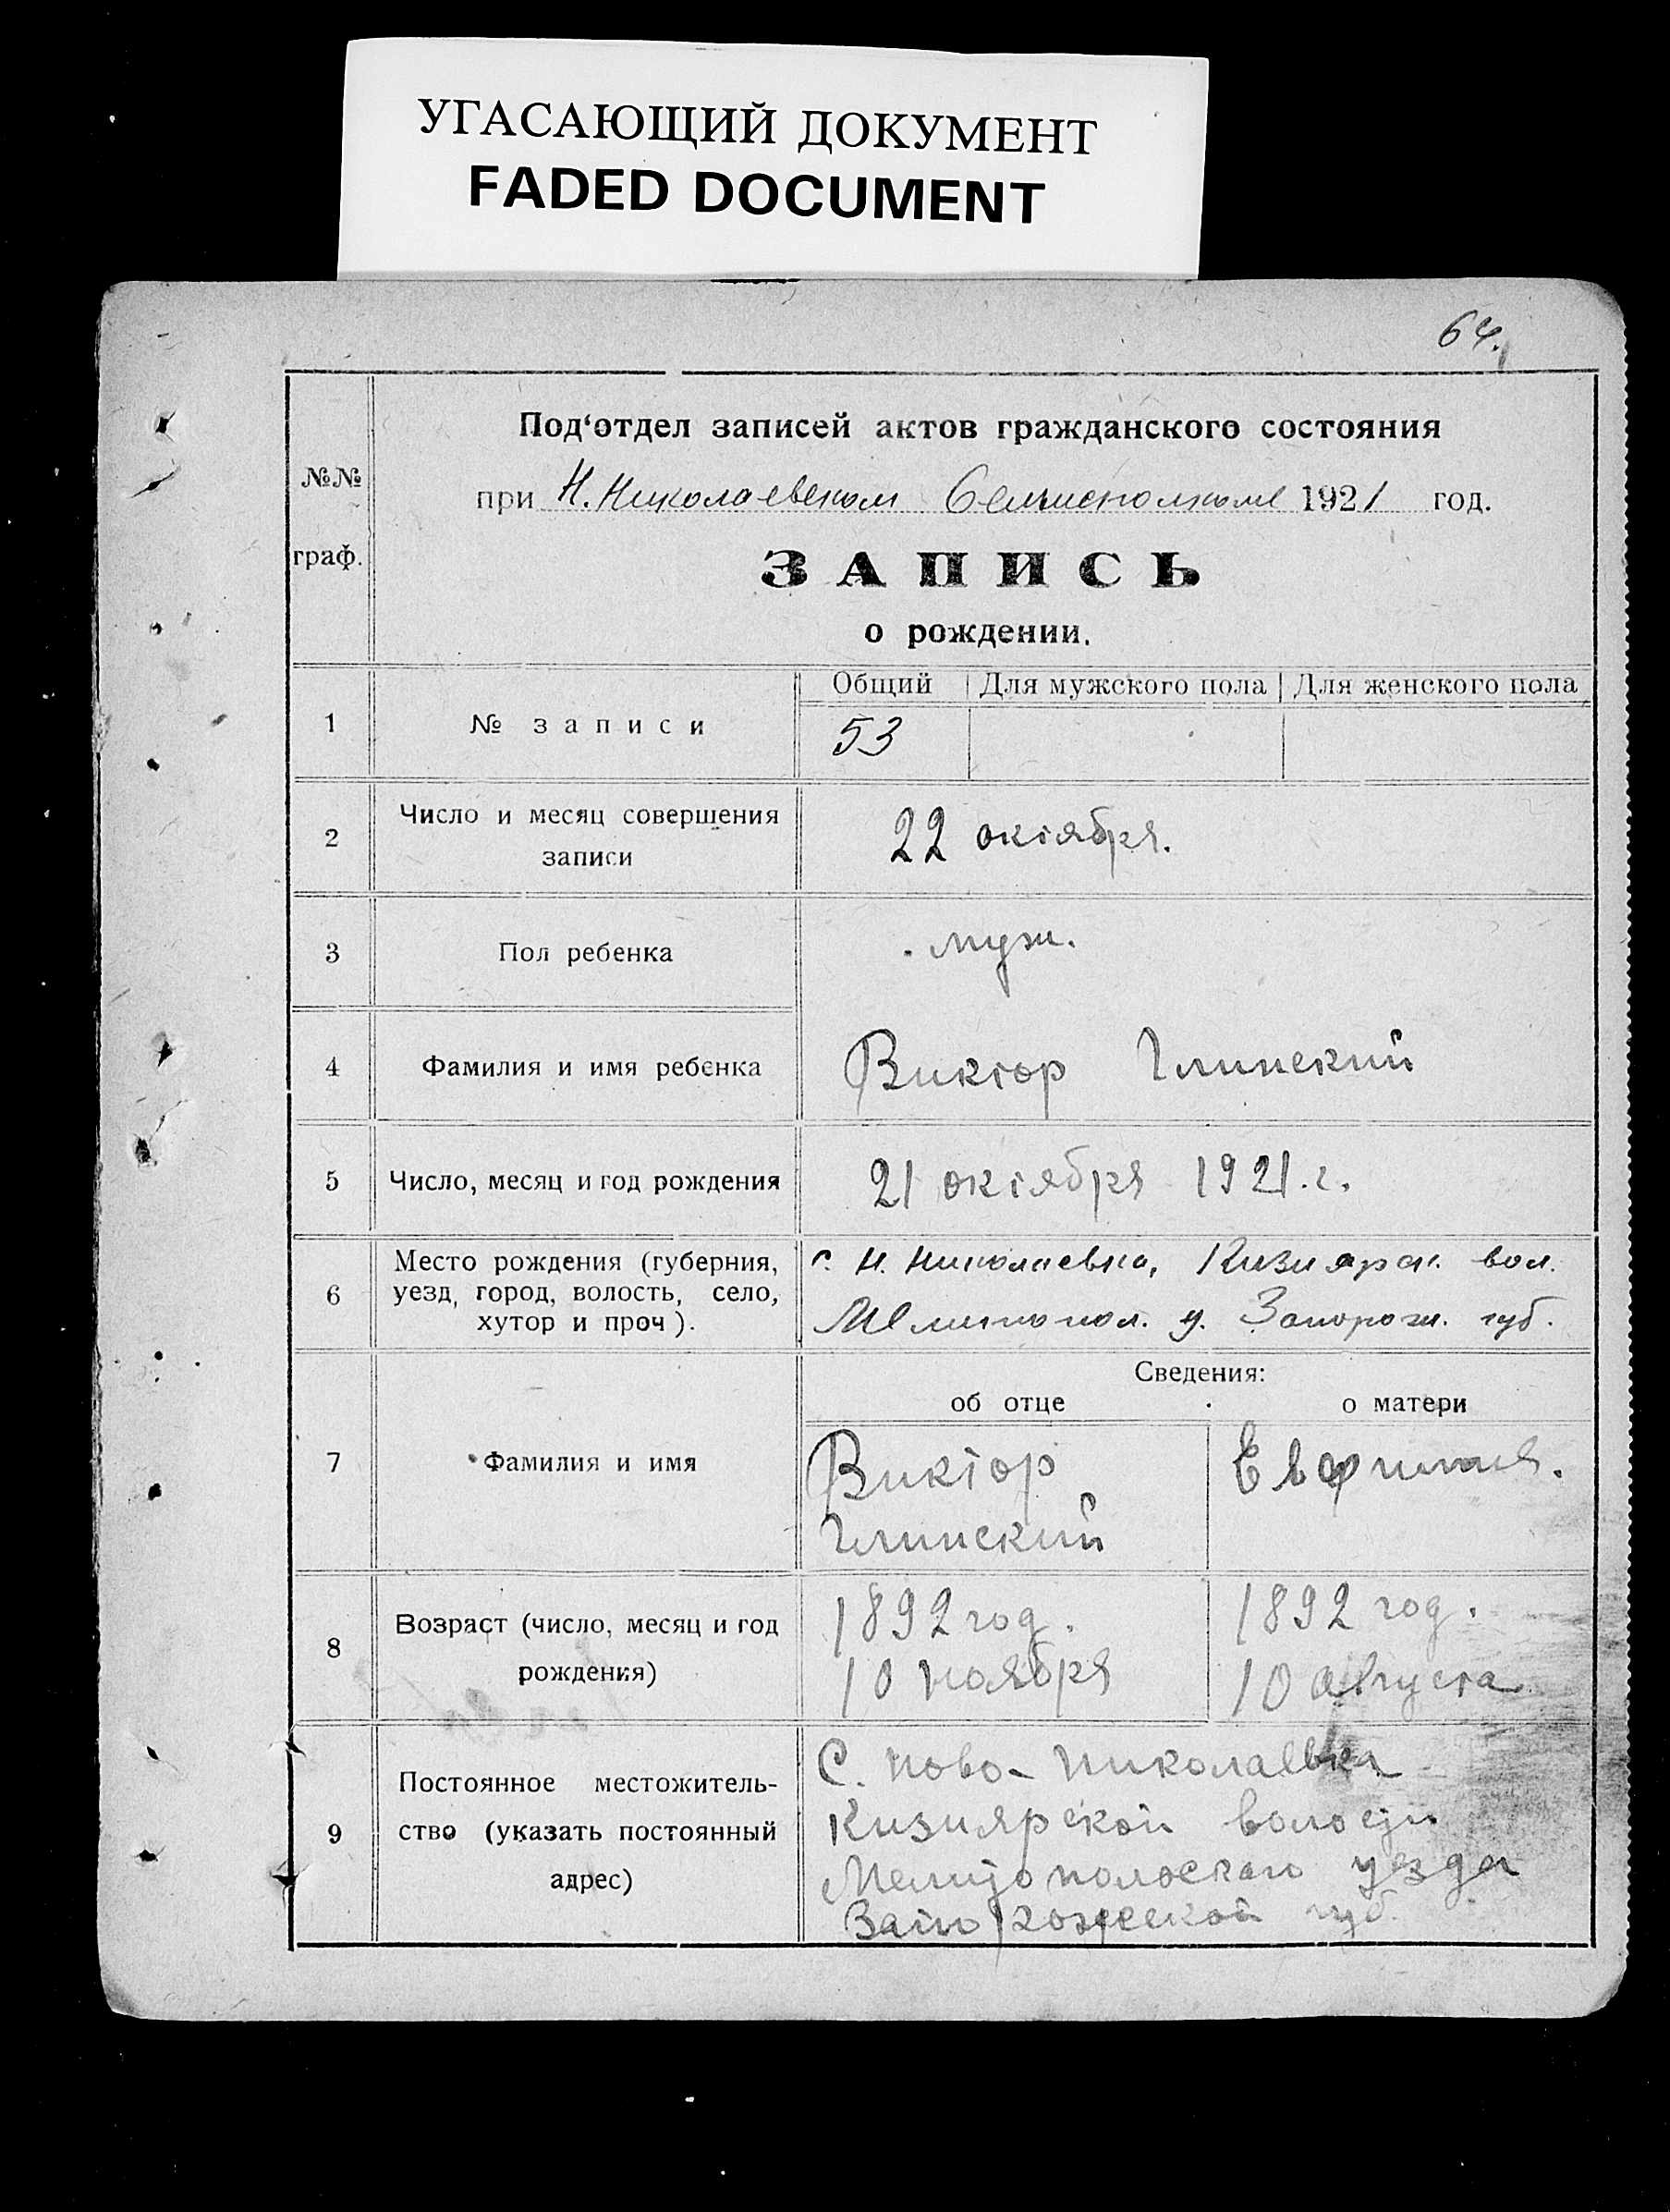 УГАСАЮЩИЙ ДОКУМЕНТ
FADED DOCUMENT
64.
№№
граф.
Под‘отдел записей актов гражданского состояния
при Н. Николаевском Сельисполкоме 1921 год.
ЗАПИСЬ
о рождении.
1
№ записи
Общий
Для мужского пола
Для женского пола
53
2
Число и месяц совершения
записи
22 октября.
3
Пол ребенка
муж.
4
Фамилия и имя ребенка
Виктор Глинский
5
Число, месяц и год рождения
21 октября 1921.г.
6
Место рождения (губерния,
уезд, город, волость, село,
хутор и проч).
с. Н. Николаевка, Кизиярск. вол.
Мелитопол. у. Запорож. губ.
Сведения:
об отце
о матери
7
Фамилия и имя
Виктор
Глинский
Евфимия.
8
Возраст (число, месяц и год
рождения)
1892 год.
10 ноября
1892 год.
10 августа
9
Постоянное местожитель-
ство (указать постоянный
адрес)
С. Ново-Николаевка
Кизиярской волости
Мелитополоского уезда
губ.